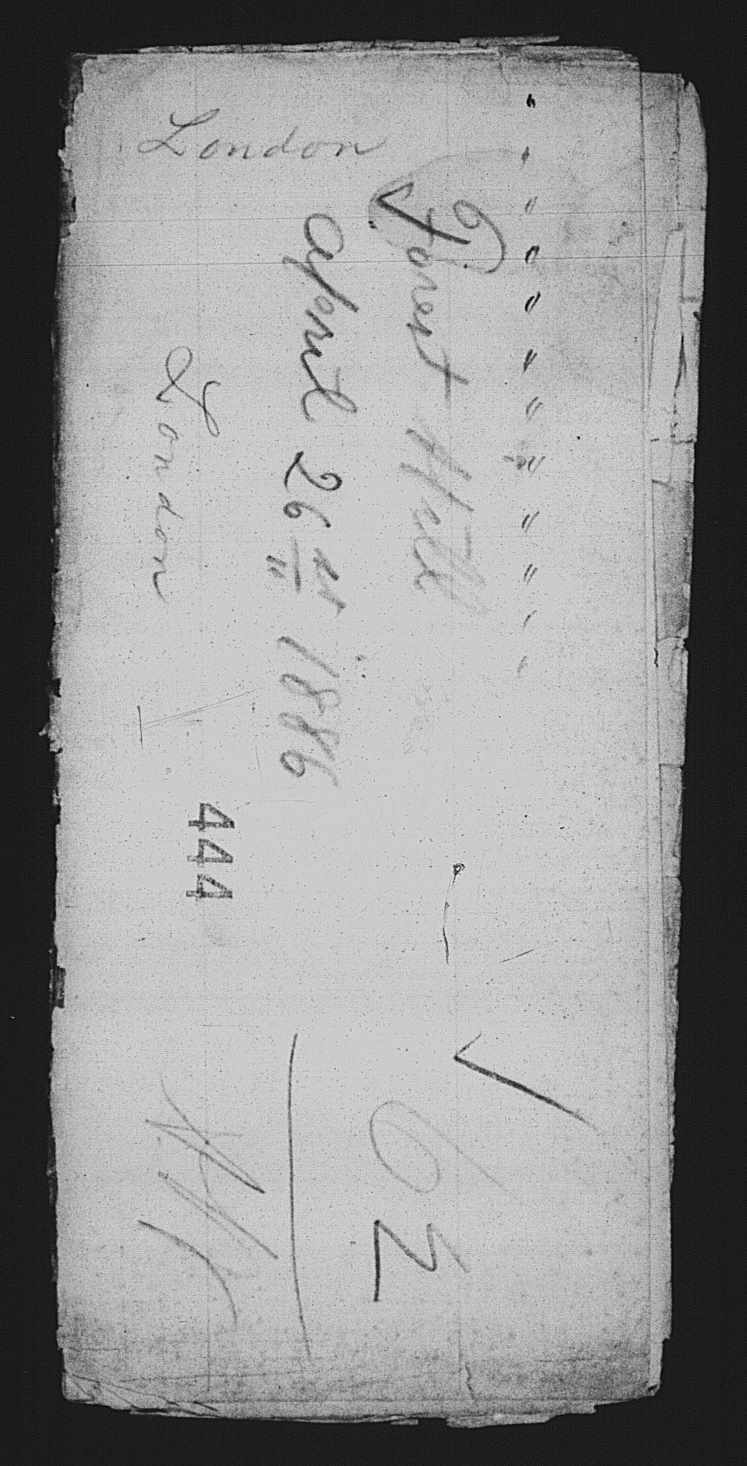 London
Forest Hill
April 26th 1886
London
444
62